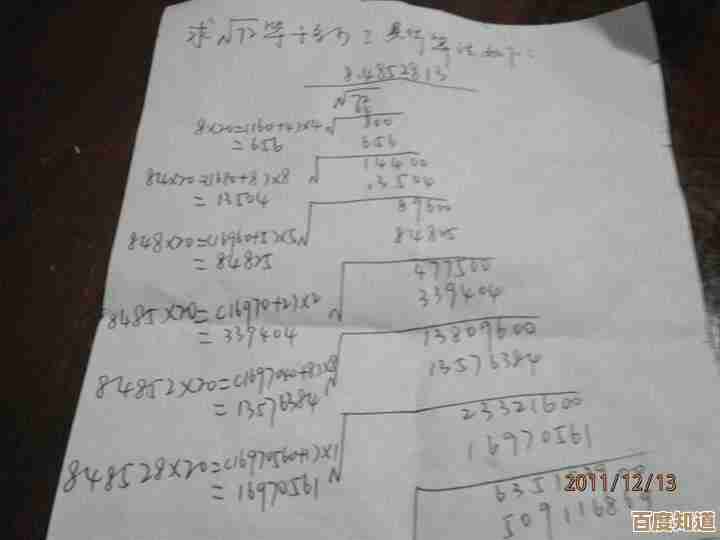 求√72等于多少？具体算法如下：
8.4852813
√72
64
8×20=(160+4)×4 √ 800
=656 656
84×20=(1680+8)×8 √ 14400
=13504 13504
848×20=(16960+5)×5 √ 89600
=84825 84825
8485×20=(169700+2)×2 √ 477500
=339404 339404
84852×20=(1697040+8)×8 √ 13809600
=13576384 13576384
848528×20=(16970560+1)×1 √ 23321600
=16970561 16970561
2011/12/13
百度知道